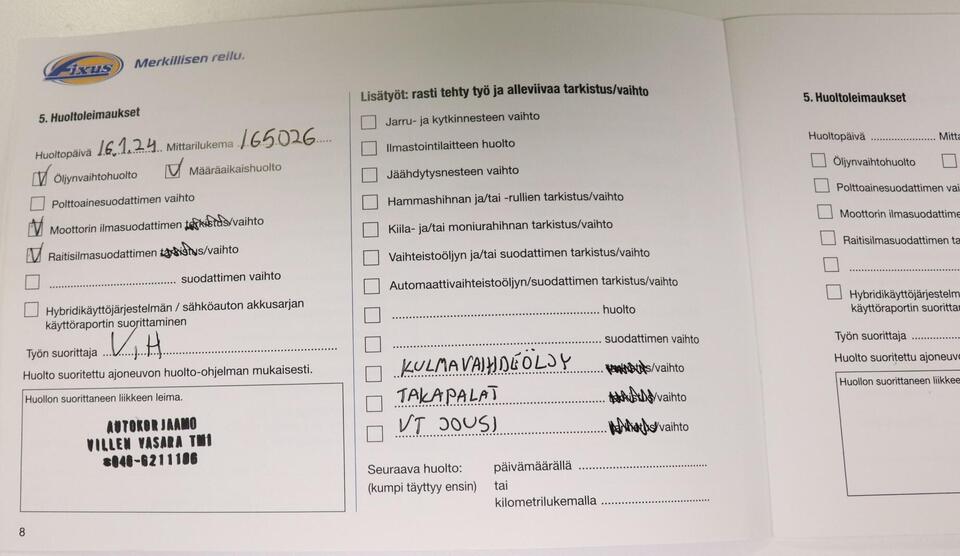 Fixus Merkillisen reilu.
5. Huoltoleimaukset
Huoltopäivä 16.1.24 Mittarilukema 165026
Öljynvaihtohuolto Määräaikaishuolto
Polttoainesuodattimen vaihto
Moottorin ilmasuodattimen tarkistus/vaihto
Raitisilmasuodattimen tarkistus/vaihto
suodattimen vaihto
Hybridikäyttöjärjestelmän / sähköauton akkusarjan
käyttöraportin suorittaminen
Työn suorittaja V.H
Huolto suoritettu ajoneuvon huolto-ohjelman mukaisesti.
Huollon suorittaneen liikkeen leima.
AUTOKORJAAMO
VILLEN VASARA TMI
☎040-6211106
8
Lisätyöt: rasti tehty työ ja alleviivaa tarkistus/vaihto
Jarru- ja kytkinnesteen vaihto
Ilmastointilaitteen huolto
Jäähdytysnesteen vaihto
Hammashihnan ja/tai -rullien tarkistus/vaihto
Kiila- ja/tai moniurahihnan tarkistus/vaihto
Vaihteistoöljyn ja/tai suodattimen tarkistus/vaihto
Automaattivaihteistoöljyn/suodattimen tarkistus/vaihto
huolto
suodattimen vaihto
KULMAVAIHDEÖLJY /vaihto
TAKAPALAT /vaihto
VT JOUSI /vaihto
Seuraava huolto: päivämäärällä
(kumpi täyttyy ensin) tai
kilometrilukemalla
5. Huoltoleimaukset
Huoltopäivä Mitta
Öljynvaihtohuolto
Polttoainesuodattimen vai
Moottorin ilmasuodattime
Raitisilmasuodattimen ta
Hybridikäyttöjärjestelm
käyttöraportin suorittam
Työn suorittaja
Huolto suoritettu ajoneuvo
Huollon suorittaneen liikkee